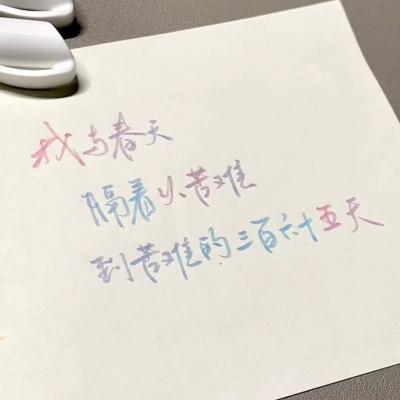 我与春天
隔着从苦难
到苦难的三百六十五天